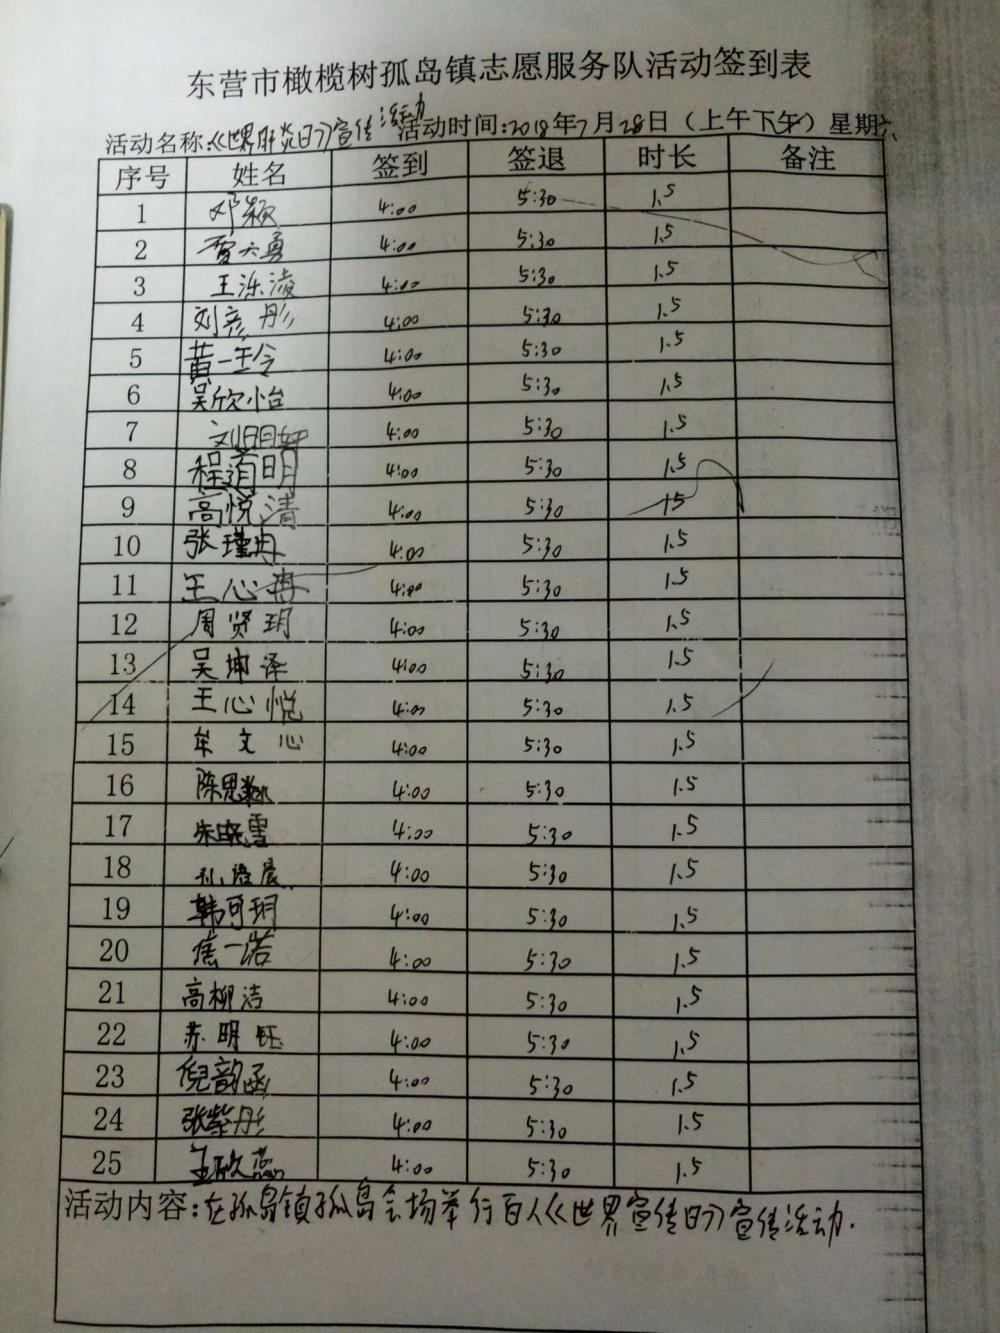 东营市橄榄树孤岛镇志愿服务队活动签到表
活动名称:《世界肝炎日》宣传活动 活动时间:2018年7月28日（上午下午）星期六
序号 姓名 签到 签退 时长 备注
1 邓颖 4:00 5:30 1.5
2 贾大勇 4:00 5:30 1.5
3 王泺凌 4:00 5:30 1.5
4 刘彦彤 4:00 5:30 1.5
5 黄一玲 4:00 5:30 1.5
6 吴欣怡 4:00 5:30 1.5
7 刘 4:00 5:30 1.5
8 程 明 4:00 5:30 1.5
9 高悦清 4:00 5:30 1.5
10 张瑾冉 4:00 5:30 1.5
11 王心冉 4:00 5:30 1.5
12 周贤玥 4:00 5:30 1.5
13 吴坤泽 4:00 5:30 1.5
14 王心悦 4:00 5:30 1.5
15 牟文心 4:00 5:30 1.5
16 陈思 4:00 5:30 1.5
17 朱晓雪 4:00 5:30 1.5
18 晨 4:00 5:30 1.5
19 韩可玥 4:00 5:30 1.5
20 焦一诺 4:00 5:30 1.5
21 高柳洁 4:00 5:30 1.5
22 苏明钰 4:00 5:30 1.5
23 倪韵函 4:00 5:30 1.5
24 张紫彤 4:00 5:30 1.5
25 王欣蕊 4:00 5:30 1.5
活动内容:在孤岛镇孤岛会场举行百人《世界宣传日》宣传活动.